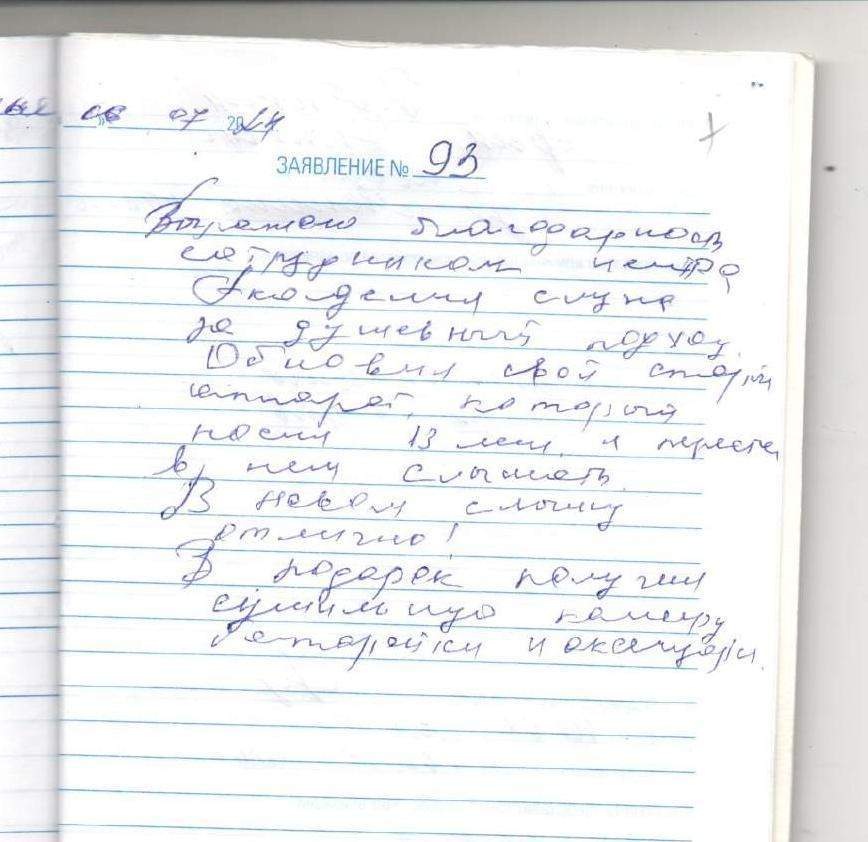 06 07 2024
ЗАЯВЛЕНИЕ № 93
Выражаю благодарность
сотрудникам центра
Академия слуха
за душевный подход.
Обновил свой старый
аппарат, который
носил 13 лет, и перестал
в нем слышать.
В новом слышу
отлично!
В подарок получил
сушильную камеру
батарейки и аксессуары.